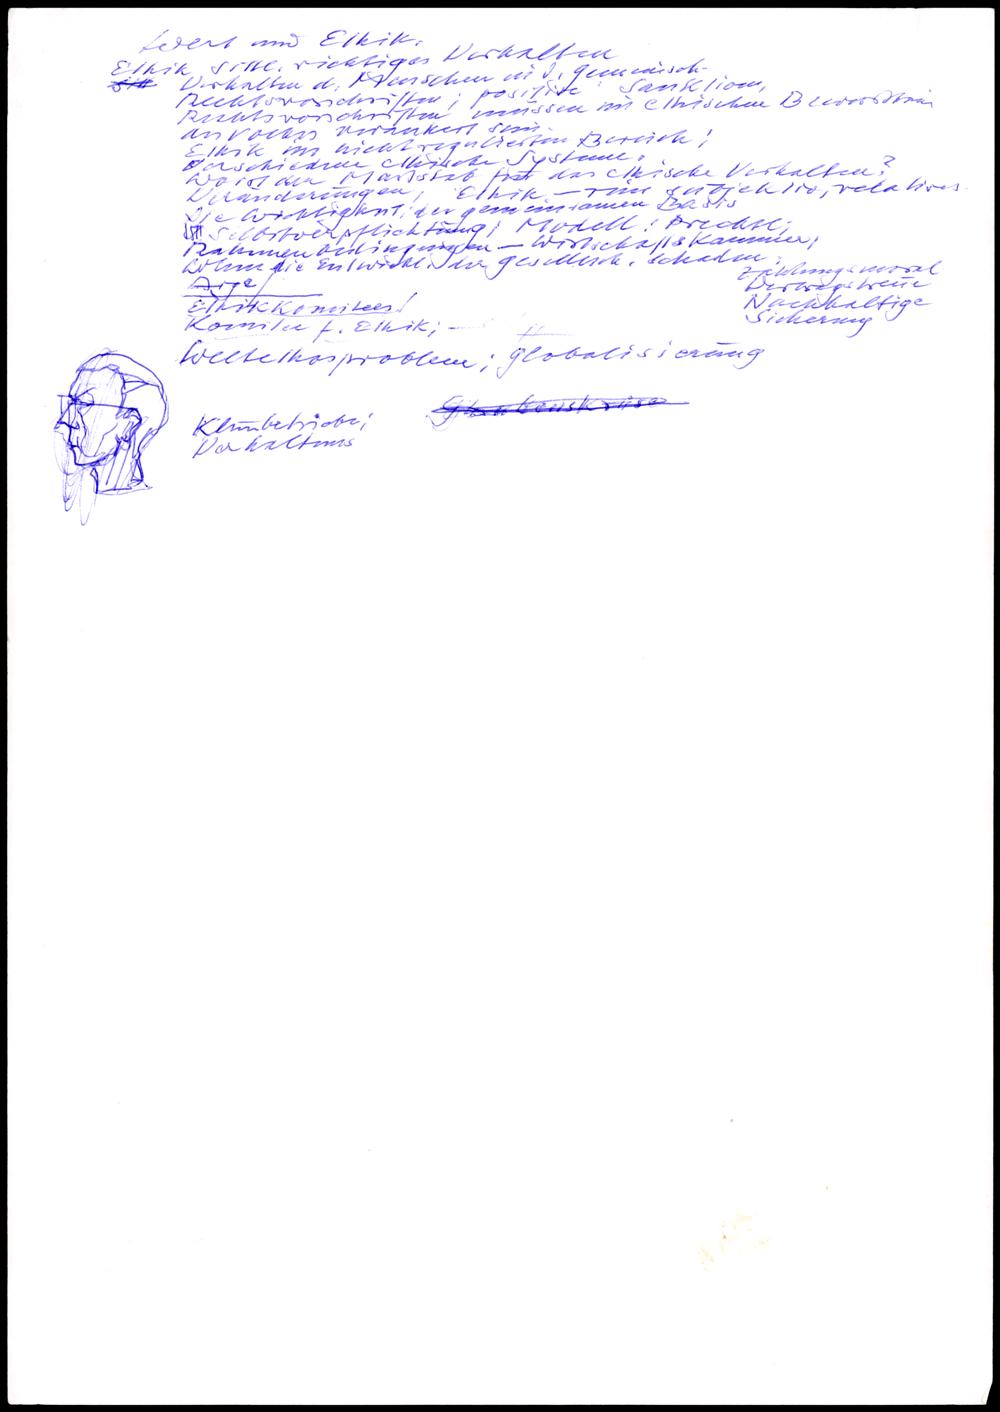 Wert und Ethik.
Ethik, sittl. richtiges Verhalten
Verhalten d. Menschen in d. gemeinsch.
Rechtsvorschriften; positive Sanktion,
Rechtsvorschriften müssen im ethischen Bewusstsein
des Volkes verankert sein.
Ethik im nicht regulierten Bereich!
Verschiedene ethische Systeme.
Wo ist der Maßstab für das ethische Verhalten?
Veränderungen, Ethik — rein subjektiv, relatives.
Die Wichtigkeit der gemeinsamen Basis
Selbstverpflichtung; Modell:
Rahmenbedingungen — Wirtschaftskammer,
die Entwickl. der gesellsch. Schaden;
Zahlungsmoral
Vertragstreue
Nachhaltige
Sicherung
Arge
Ethikkomitees!
Komitee f. Ethik; —
Weltethosproblem; Globalisierung
Glaubenskrise
Kleinbetriebe;
Verhaltens